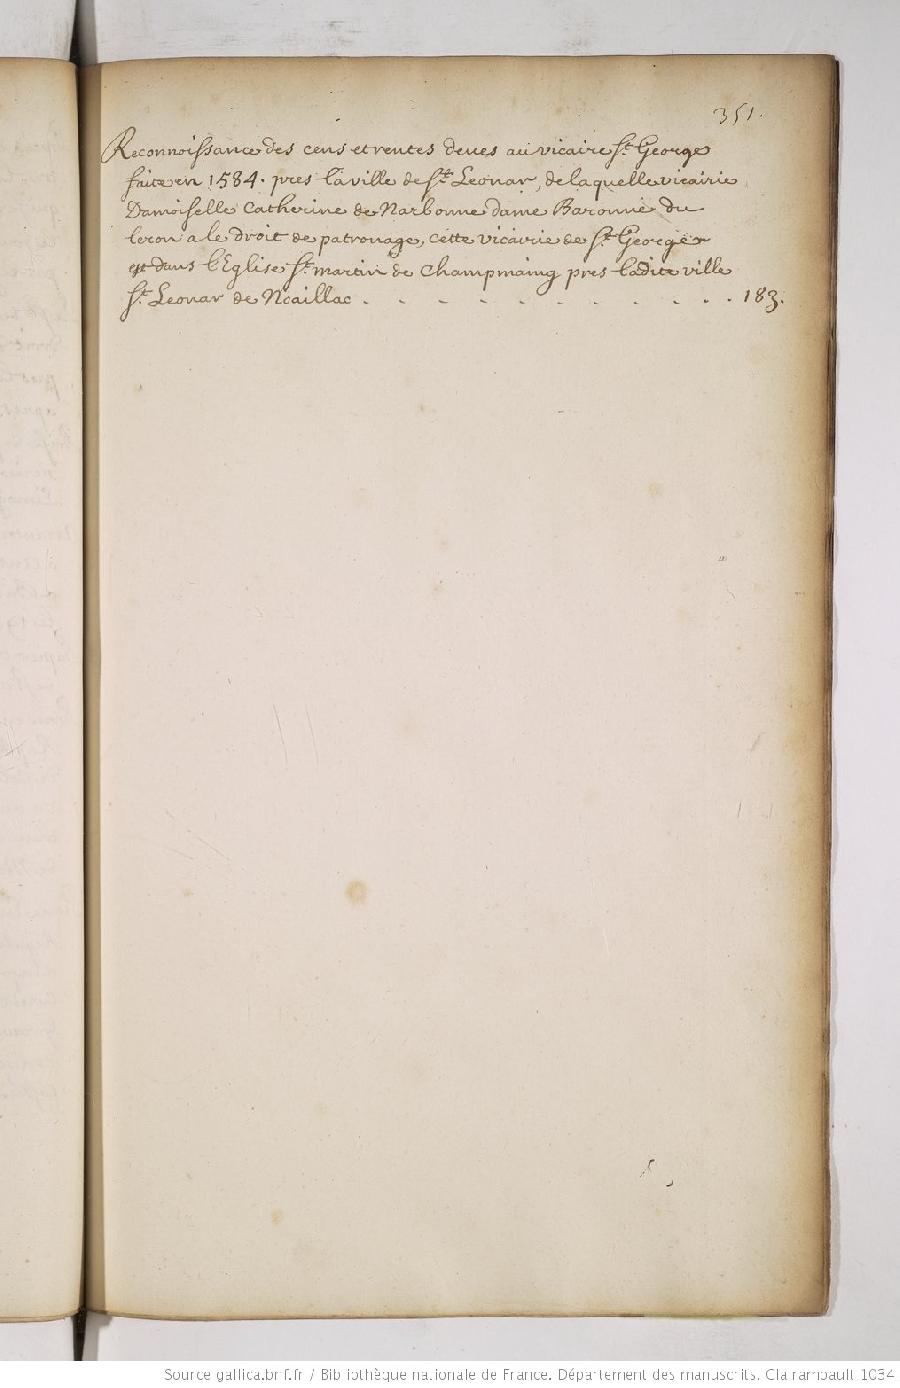 351.
Reconnoissance des cens et rentes deues au vicaire St. George
faite en 1584. pres la ville de St. Leonar, de laquelle vicairie
Damoiselle Catherine de Narbonne dame Baronne du
leron a le droit de patronage, cette vicairie de St. George
est dans l'Eglise St. martin de Champmaing pres ladite ville
St. Leonar de Noaillac . . . . . . . . . . . . 183.
Source gallica.bnf.fr / Bibliothèque nationale de France. Département des manuscrits. Clairambault 1034